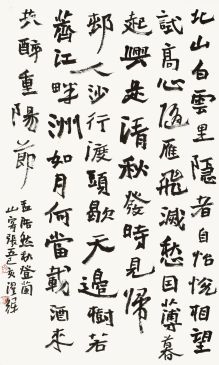 北山白雲里隱者自怡悅相望
試高心隨雁飛滅愁因薄暮
起興是清秋發時見歸
邨人沙行渡頭歇天邊樹若
薺江畔洲如月何當載酒來
共醉重陽節
孟浩然秋登蘭
山寄張五